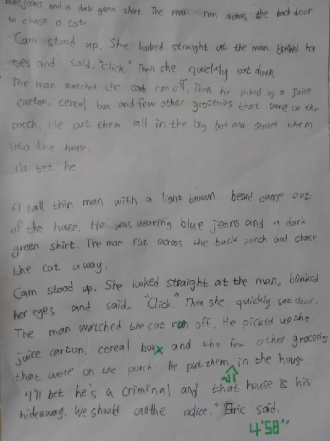 blue jeans and a dark green shirt. The man ran across the back door
to chase a cat.
"Cam stood up. She looked straight at the man, blinked her
eyes and said, "Click." Then she quickly sat down.
The man watched the cat run off. Then he picked up a juice
carton, cereal box and few other groceries that were on the
porch. He put them all in the big box and them
into the house.
I'd bet he
A tall thin man with a light brown beard came out
of the house. He was wearing blue jeans and a dark
green shirt. The man ran across the back porch and chase
the cat away.
Cam stood up. She looked straight at the man, blinked
her eyes and said, "Click." Then she quickly sat down.
The man watched the cat run off. He picked up the
juice carton, cereal box and the few other groceries
that were on the porch. He put them in the house.
"I'll bet he's a criminal and that house is his
hideaway. We should call the police." Eric said.
4'58"